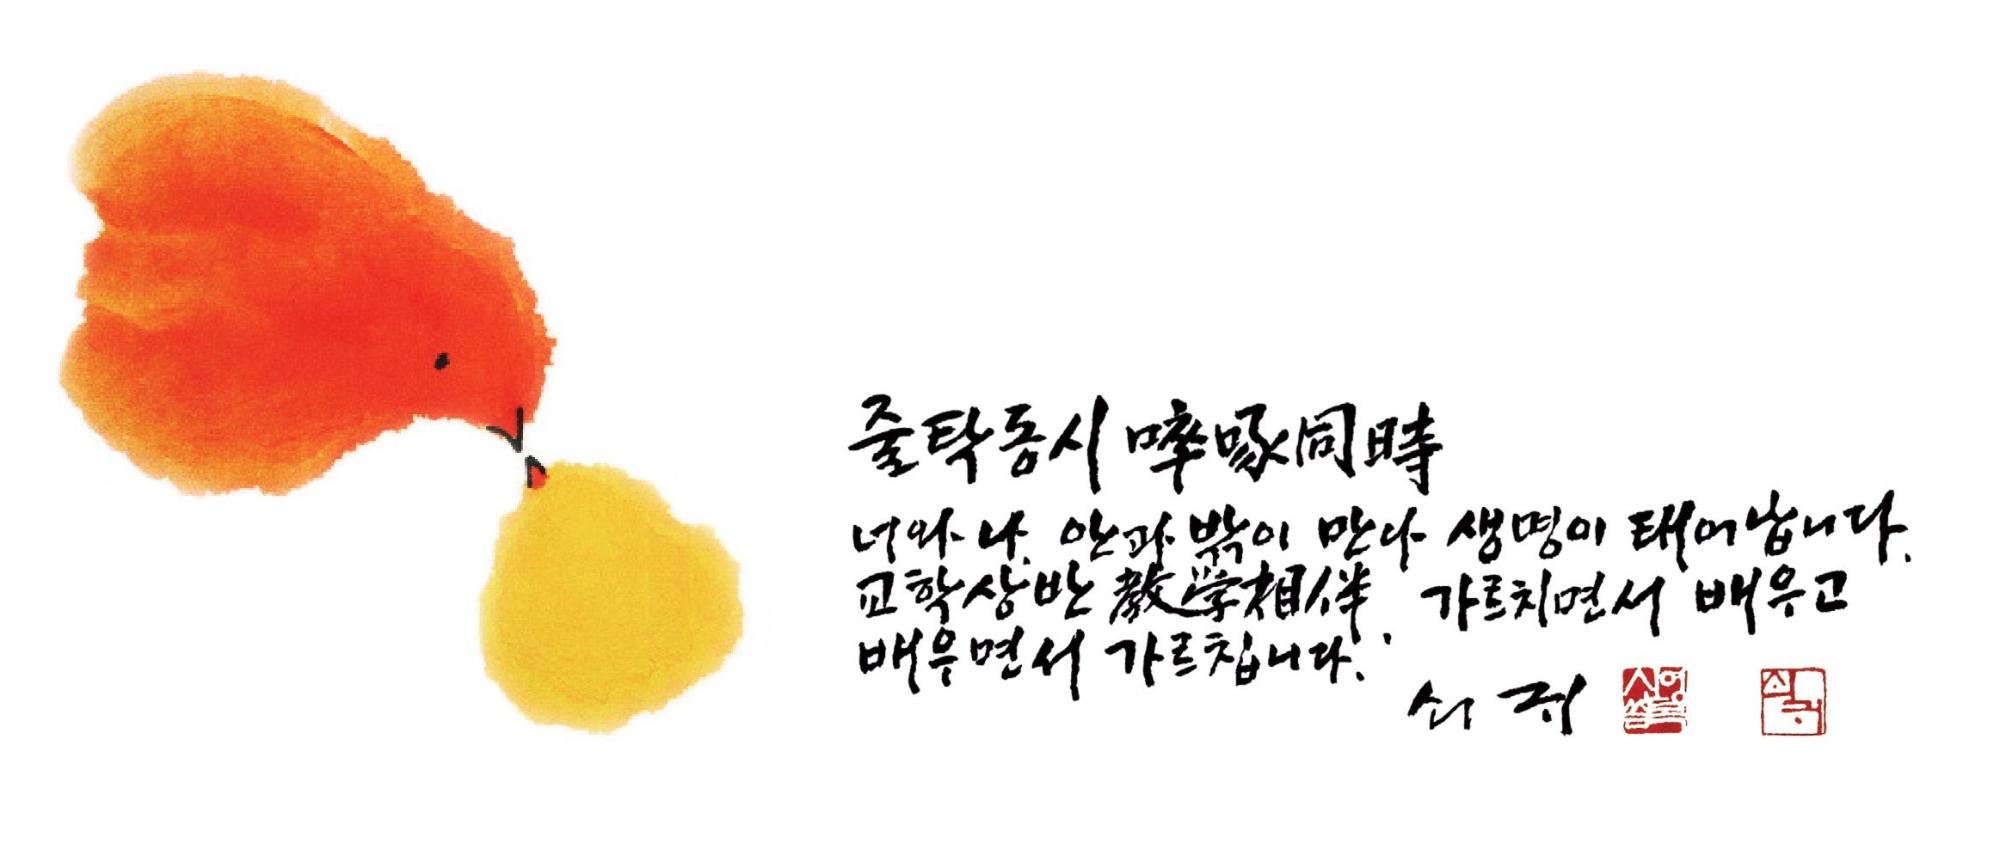 줄탁동시 啐啄同時
너와 나, 안과 밖이 만나 생명이 태어납니다.
교학상반 教学相伴, 가르치면서 배우고
배우면서 가르칩니다.
쇠귀